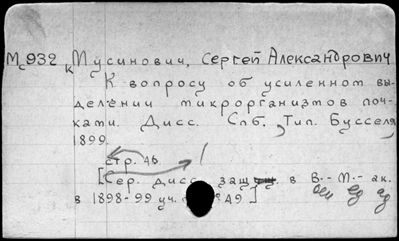 М 932 к Мусинович, Сергей Александрович
К вопросу об усиленном вы-
делении микроорганизмов поч-
ками. Дисс. Спб., Тип. Бусселя
1899.
стр. 46.
[Сер. дисс. защ. в В.-М.-ак.
в 1898-99 уч. №49]